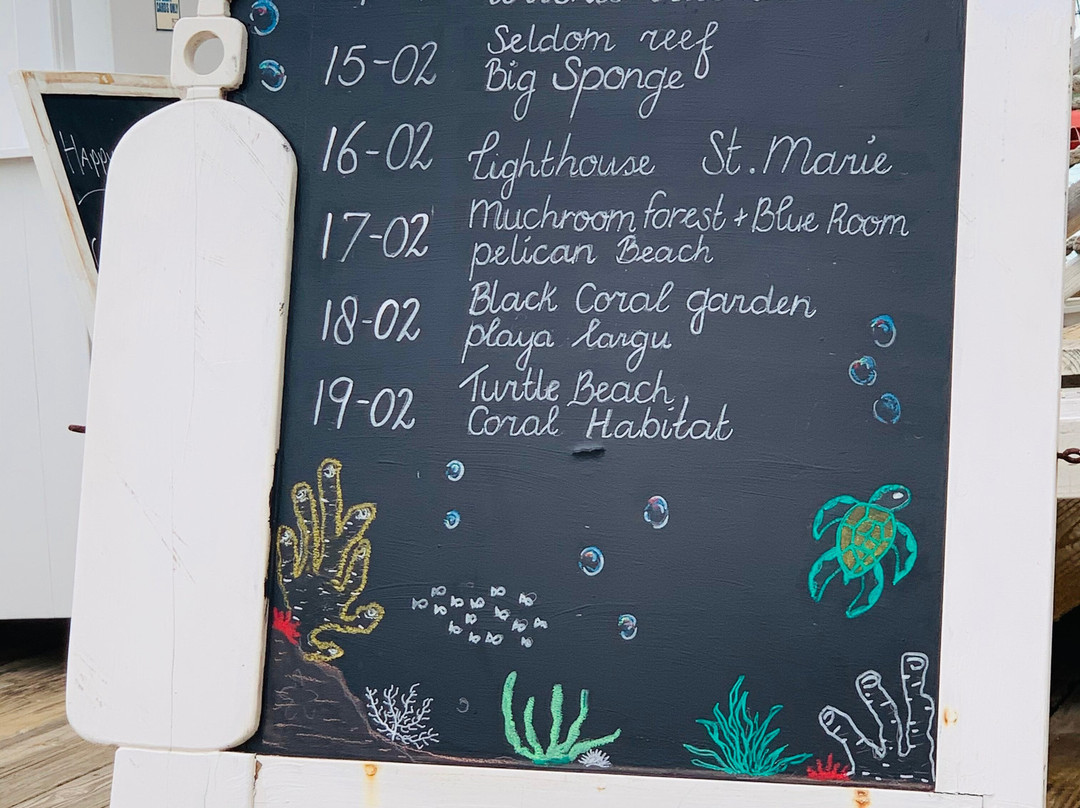 15-02 Seldom reef
Big Sponge
16-02 lighthouse St. Marie
17-02 Muchroom forest + Blue Room
pelican Beach
18-02 Black Coral garden
playa largu
19-02 Turtle Beach
Coral Habitat